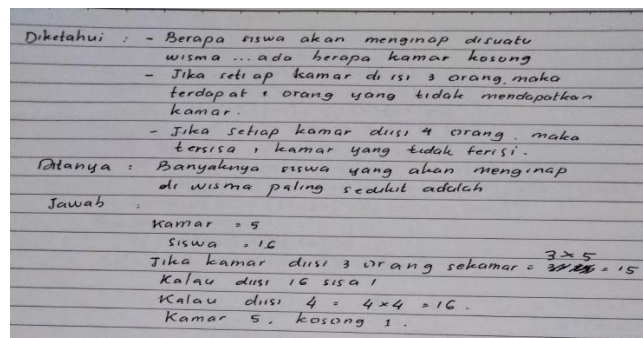 Diketahui : - Berapa siswa akan menginap disuatu
wisma ... ada berapa kamar kosong
- Jika setiap kamar di isi 3 orang, maka
terdapat 1 orang yang tidak mendapatkan
kamar.
- Jika setiap kamar diisi 4 orang. maka
tersisa 1 kamar yang tidak terisi.
Ditanya : Banyaknya siswa yang akan menginap
di wisma paling sedikit adalah
Jawab :
Kamar = 5
Siswa = 16
3 x 5
Jika kamar diisi 3 orang sekamar = = 15
Kalau diisi 16 sisa 1
Kalau diisi 4 = 4 x 4 = 16.
Kamar 5. kosong 1.